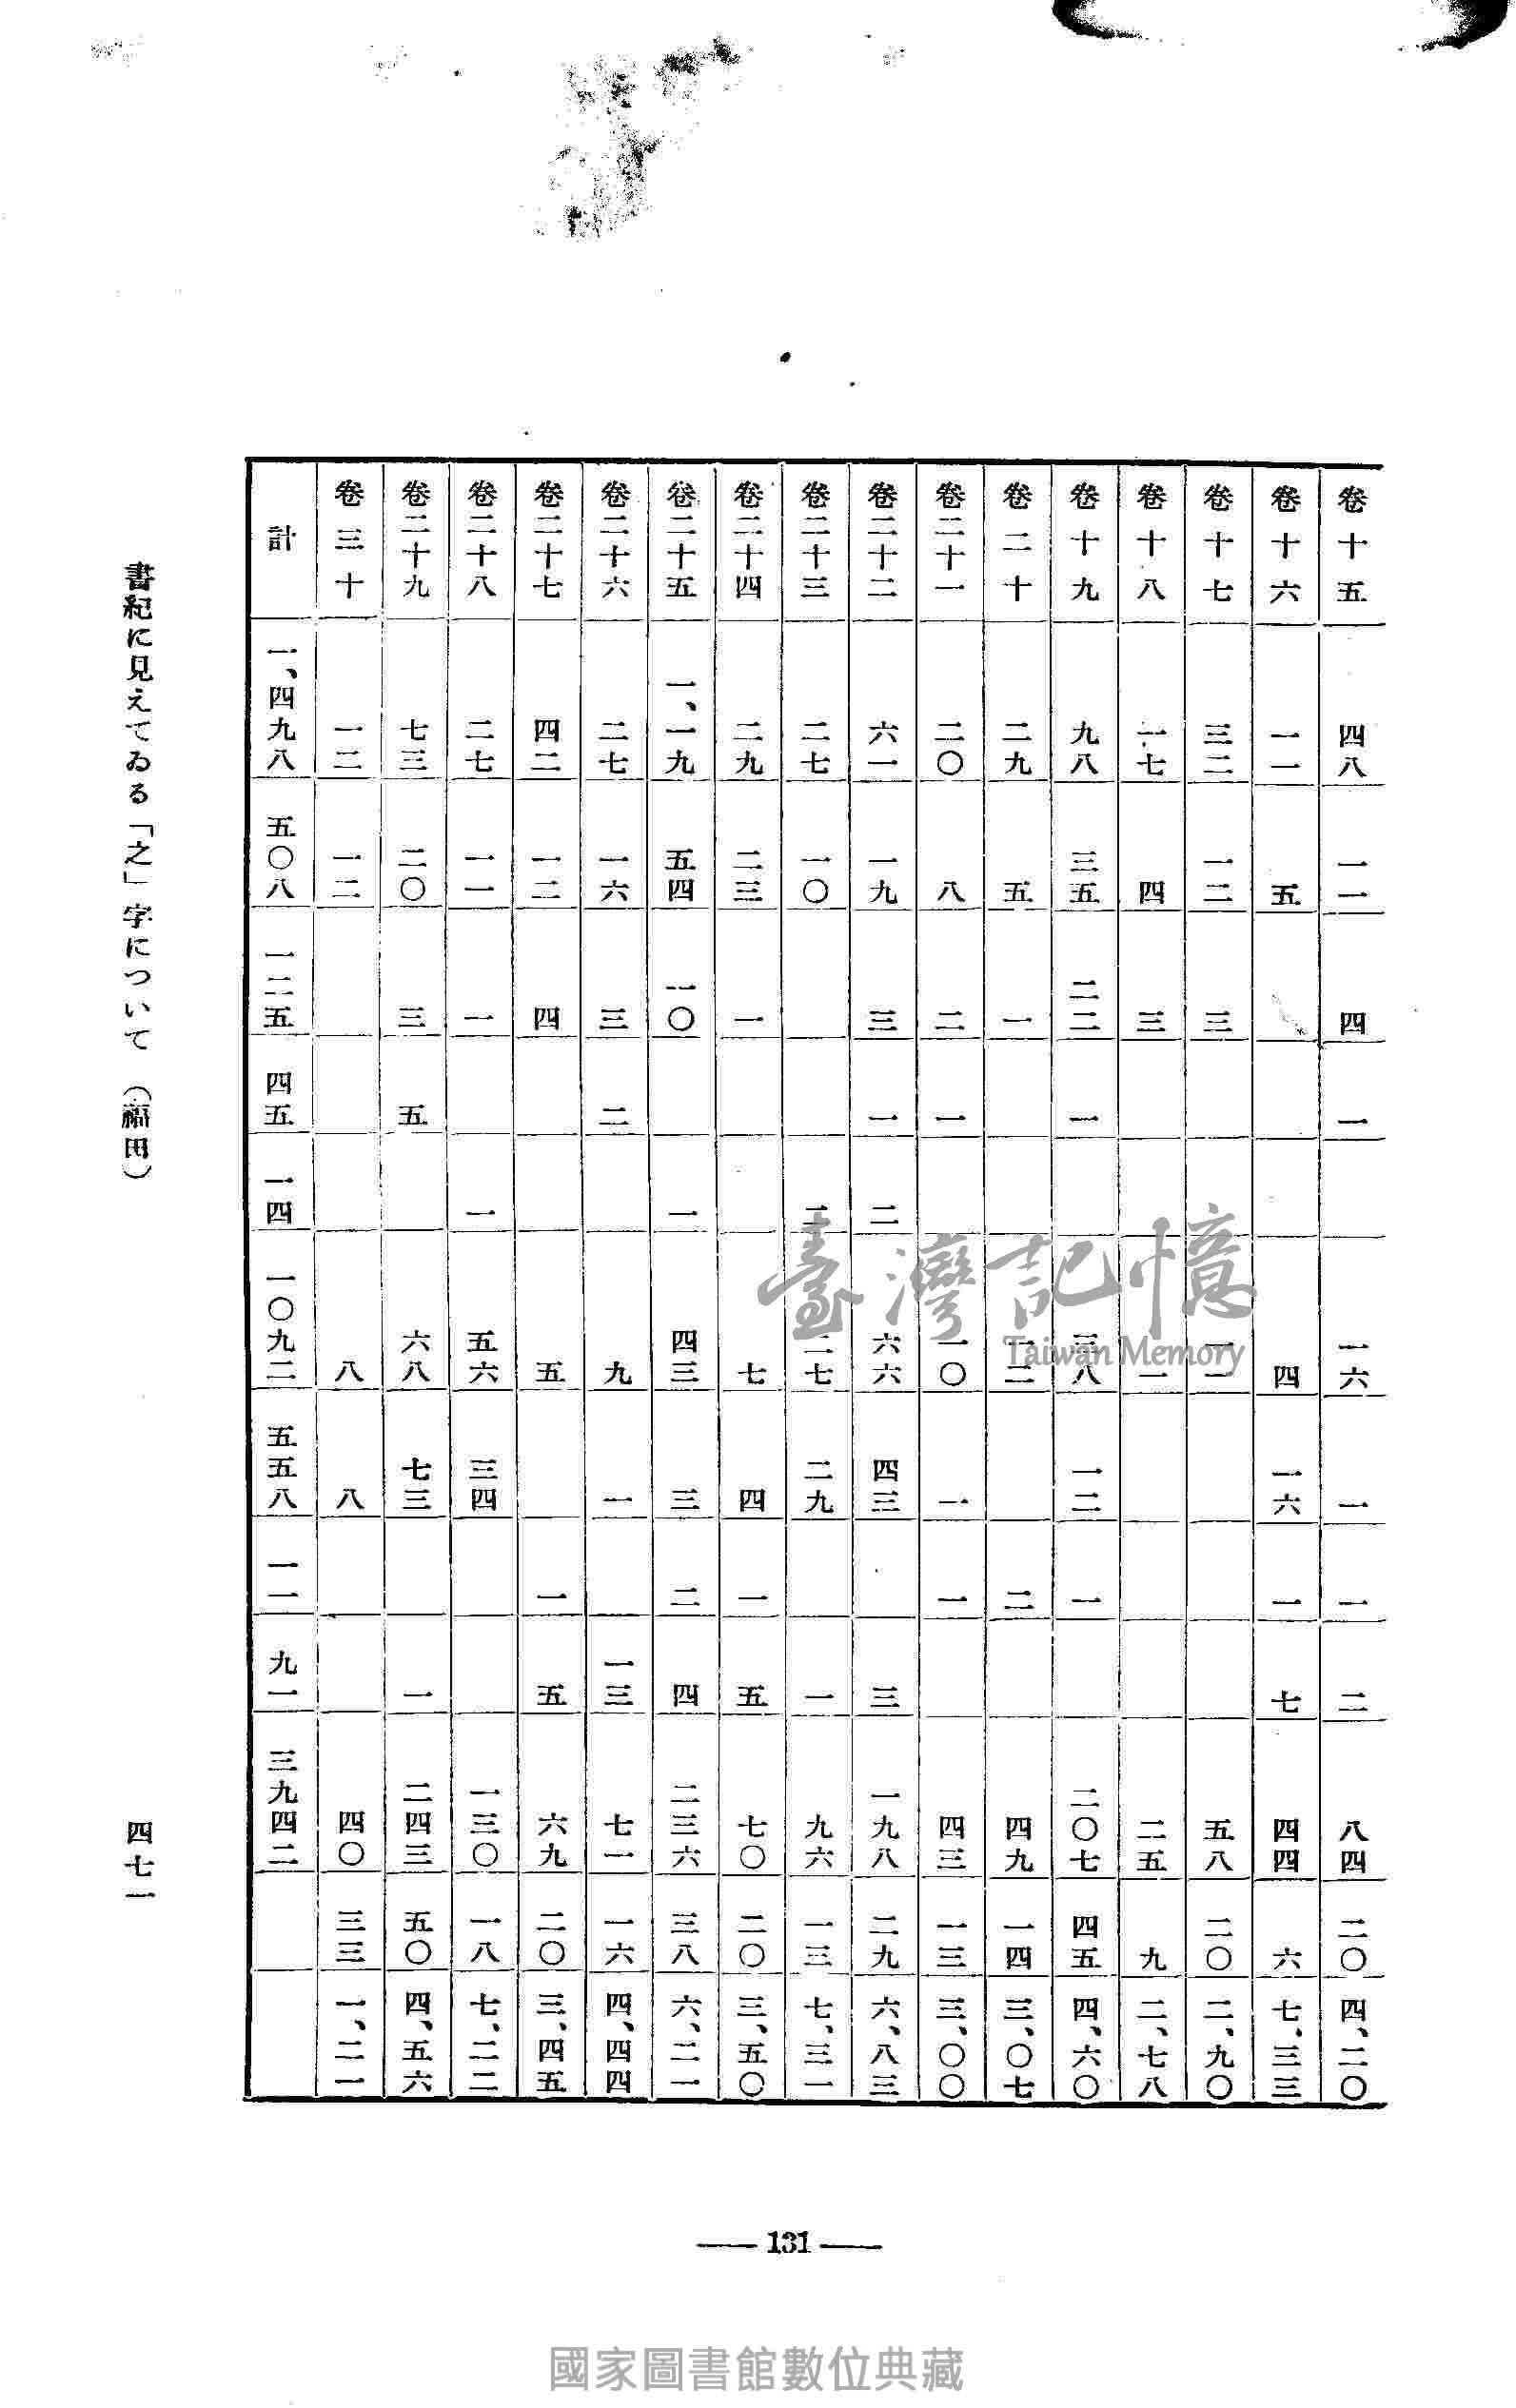 卷十五 四八 一一 四 一 一六 一 一 二 八四 二〇 四、二〇
卷十六 一一 五 四 一六 一 七 四四 六 七、三三
卷十七 三二 一二 三 一一 五八 二〇 二、九〇
卷十八 一七 四 三 一 二五 九 二、七八
卷十九 九八 三五 二二 一 三八 一二 一 二〇七 四五 四、六〇
卷二十 二九 五 一 一二 二 四九 一四 三、〇七
卷二十一 二〇 八 二 一 一〇 一 一 四三 一三 三、〇〇
卷二十二 六一 一九 三 一 二 六六 四三 三 一九八 二九 六、八三
卷二十三 二七 一〇 二 二七 二九 一 九六 一三 七、三一
卷二十四 二九 二三 一 七 四 一 五 七〇 二〇 三、五〇
卷二十五 一、一九 五四 一〇 一 四三 三 二 四 二三六 三八 六、二一
卷二十六 二七 一六 三 二 九 一 一三 七一 一六 四、四四
卷二十七 四二 一二 四 五 一 五 六九 二〇 三、四五
卷二十八 二七 一一 一 一 五六 三四 一三〇 一八 七、二二
卷二十九 七三 二〇 三 五 六八 七三 一 二四三 五〇 四、五六
卷三十 一二 一二 八 八 四〇 三三 一、二一
計 一、四九八 五〇八 一二五 四五 一四 一〇九二 五五八 一一 九一 三九四二
書紀に見えてゐる「之」字について （福田）
四七一
臺灣記憶
Taiwan Memory
— 131 —
國家圖書館數位典藏